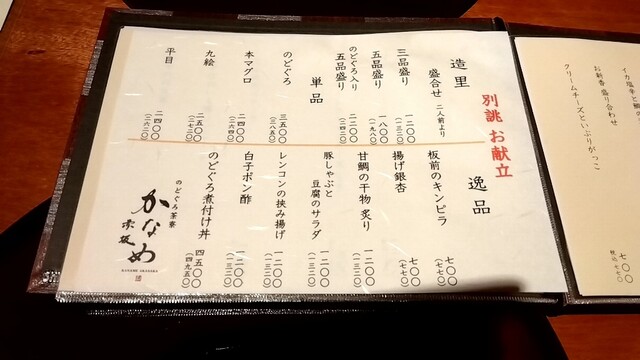 別誂 お献立
造里
盛合せ 二人前より
三品盛り 一二〇〇 (一三二〇)
五品盛り 一八〇〇 (一九八〇)
のどぐろ入り
五品盛り 二二〇〇 (二四二〇)
単品
のどぐろ 三五〇〇 (三八五〇)
本マグロ 二四〇〇 (二六四〇)
九絵 二五〇〇 (二七五〇)
平目 二四〇〇 (二六四〇)
逸品
板前のキンピラ 七〇〇 (七七〇)
揚げ銀杏 七〇〇 (七七〇)
甘鯛の干物 炙り 一二〇〇 (一三二〇)
豚しゃぶと
豆腐のサラダ 一二〇〇 (一三二〇)
レンコンの挟み揚げ 一二〇〇 (一三二〇)
白子ポン酢 一二〇〇 (一三二〇)
のどぐろ煮付け丼 四五〇〇 (四九五〇)
のどぐろ茶寮
かなめ
赤坂
お新香 盛り合わせ
クリームチーズといぶりがっこ
七〇〇